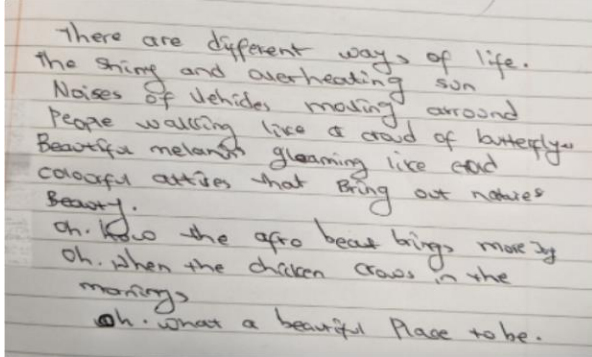 There are different ways of life.
the shiny and overheating sun
Noises of vehicles moving arround
People walking like a crowd of butterfly
Beautiful melanin gleaming like
colourful attires that Bring out natures
Beauty.
Oh. How the afro beat brings more joy
Oh. when the chicken crows in the
mornings
Oh. what a beautiful Place to be.